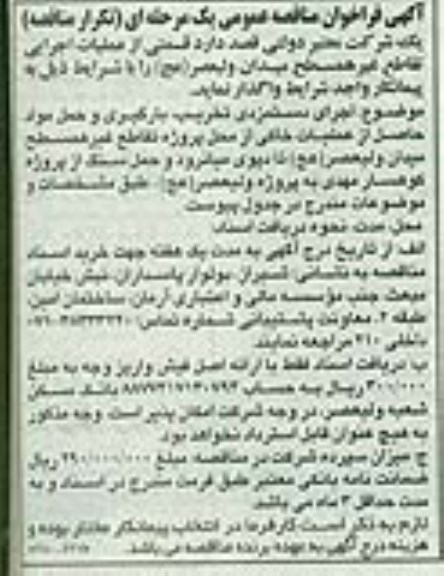 آگهی فراخوان مناقصه عمومی یک مرحله ای (تکرار مناقصه)
یک شرکت معتبر دولتی قصد دارد قسمتی از عملیات اجرایی
تقاطع غیرهمسطح میدان ولیعصر(عج) را با شرایط ذیل به
پیمانکار واجد شرایط واگذار نماید.
موضوع: اجرای دستمزدی تخریب، بارگیری و حمل مواد
حاصل از عملیات خاکی از محل پروژه تقاطع غیرهمسطح
میدان ولیعصر(عج) تا دپوی میانرود و حمل سنگ از پروژه
کوهسار مهدی به پروژه ولیعصر(عج)، طبق مشخصات و
موضوعات مندرج در جدول پیوست
محل، مدت، نحوه دریافت اسناد:
الف: از تاریخ درج آگهی به مدت یک هفته جهت خرید اسناد
مناقصه به نشانی: شیراز، بولوار پاسداران، نبش خیابان
مبعث، جنب مؤسسه مالی و اعتباری آرمان، ساختمان امین،
طبقه ۲، معاونت پشتیبانی شماره تماس:
داخلی ۲۱۰ مراجعه نمایند.
ب: دریافت اسناد فقط با ارائه اصل فیش واریز وجه به مبلغ
۳۰۰/۰۰۰ ریال به حساب بانک مسکن
شعبه ولیعصر، در وجه شرکت امکان پذیر است. وجه مذکور
به هیچ عنوان قابل استرداد نخواهد بود.
ج: میزان سپرده شرکت در مناقصه: مبلغ ۲۹۰/۰۰۰/۰۰۰ ریال
ضمانت نامه بانکی معتبر طبق فرمت مندرج در اسناد و به
مدت حداقل ۳ ماه می باشد.
لازم به ذکر است کارفرما در انتخاب پیمانکار مختار بوده و
هزینه درج آگهی به عهده برنده مناقصه می باشد.